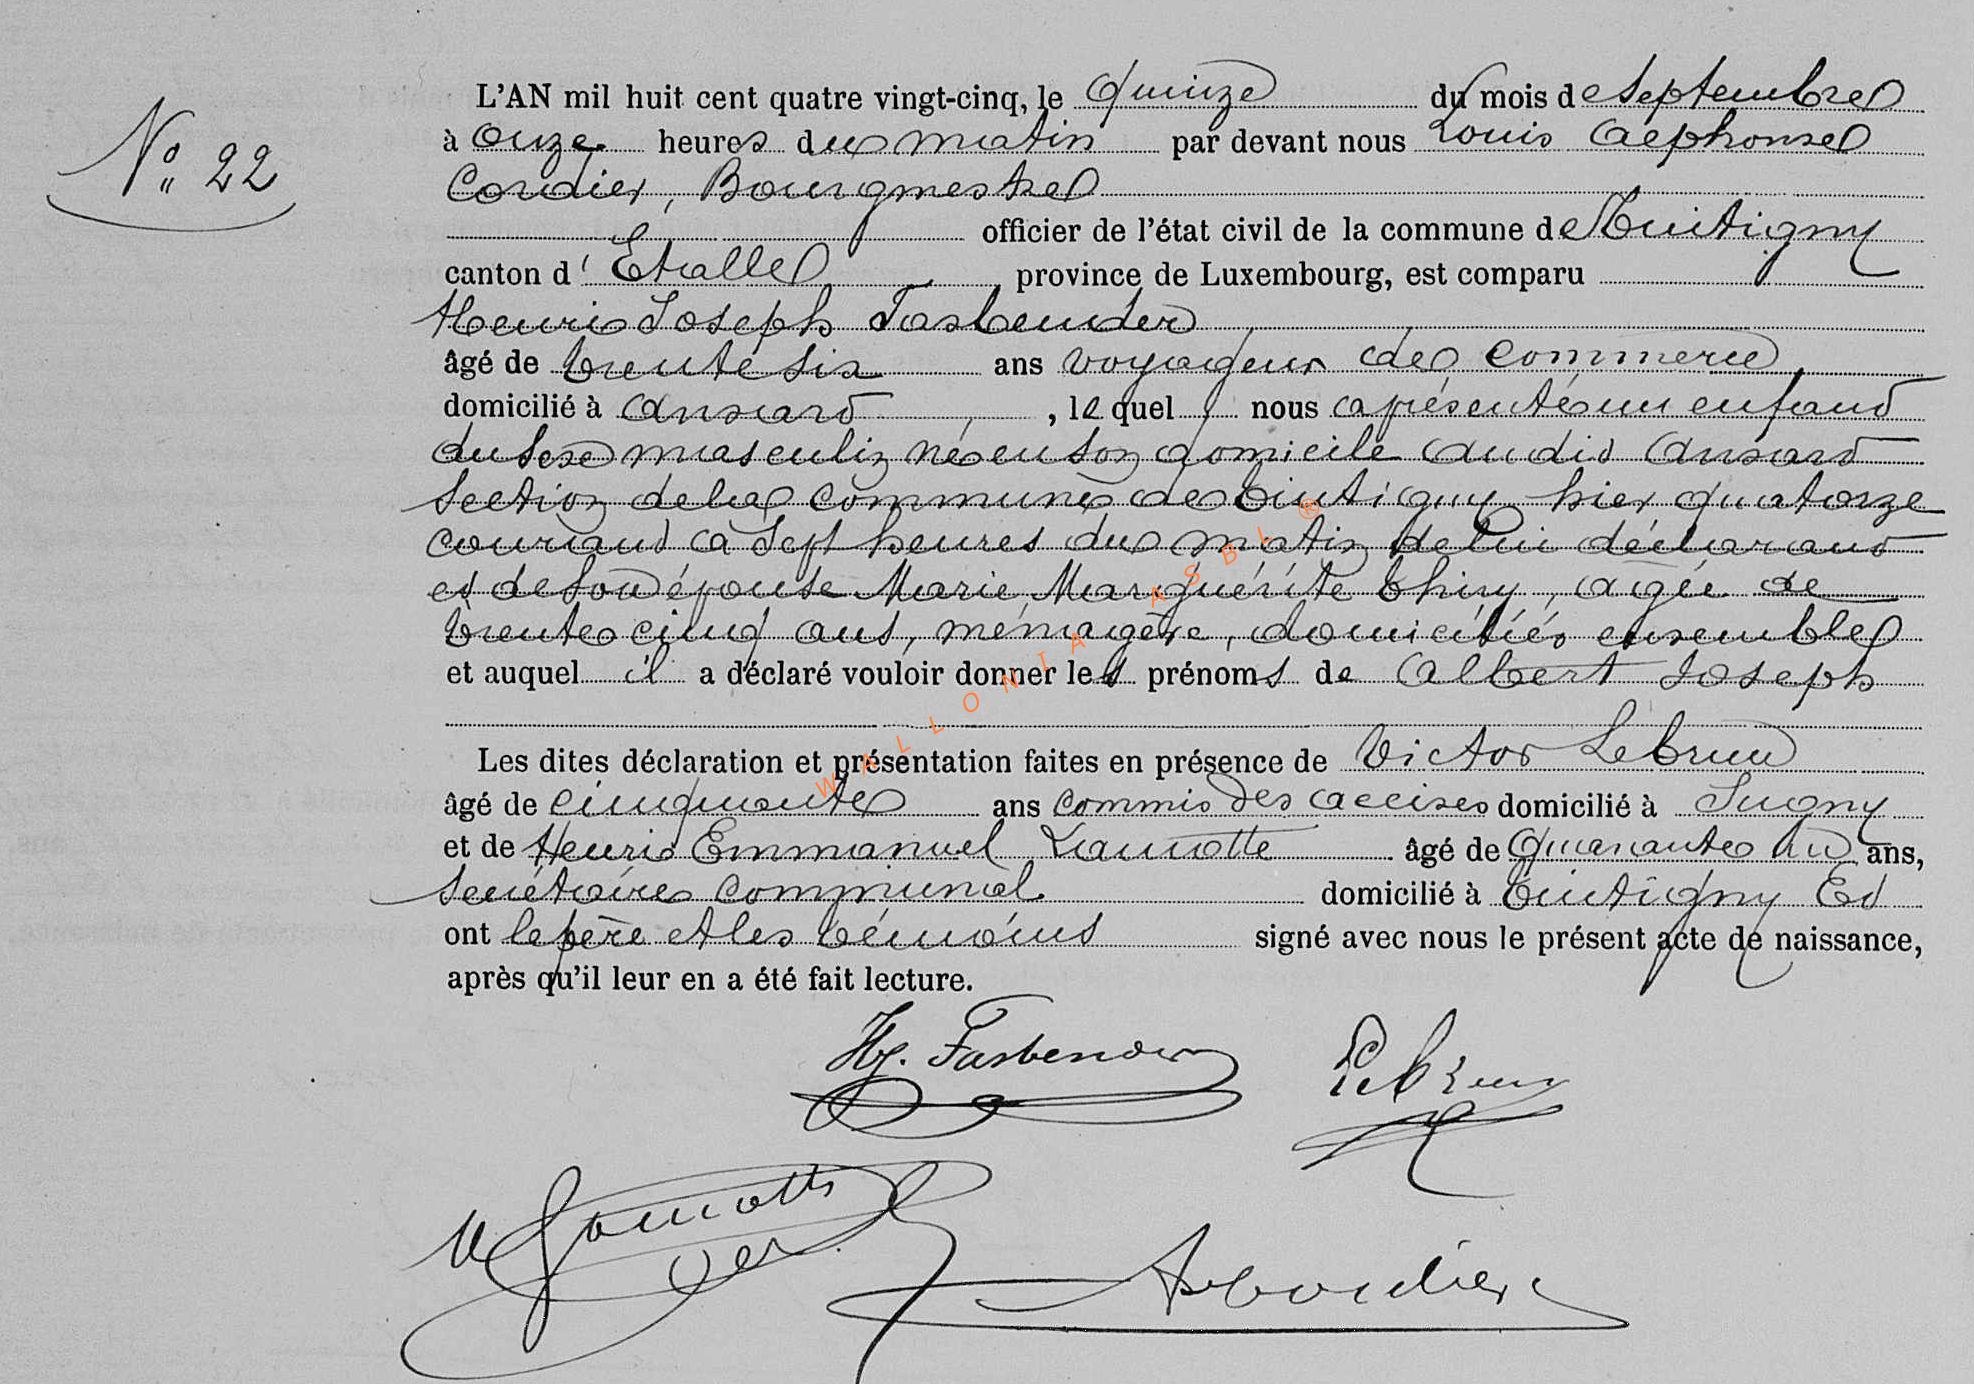 N° 22
L'AN mil huit cent quatre vingt-cinq, le quinze du mois de Septembre
à onze heures du matin par devant nous Louis Alphonse
Cordier, Bourgmestre
officier de l'état civil de la commune de Tintigny
canton d'Etalle province de Luxembourg, est comparu
Henri Joseph Fasbender
âgé de trente six ans voyageur de commerce
domicilié à Ansart, lequel nous a présenté un enfant
du sexe masculin né en son domicile audit Ansart
section de la commune de Tintigny hier quatorze
courant à sept heures du matin de lui déclarant
et de son épouse Marie Marguérite Thiry, agée de
trente cinq ans, ménagère, domiciliés ensemble
et auquel il a déclaré vouloir donner les prénoms de Albert Joseph
Les dites déclaration et présentation faites en présence de Victor Lebrun
âgé de cinquante ans commis des accises domicilié à Sugny
et de Henri Emmanuel Lamotte âgé de quarante huit ans,
secrétaire communal domicilié à Tintigny Et
ont le père et les témoins signé avec nous le présent acte de naissance,
après qu'il leur en a été fait lecture.
Hy. Fasbender Lebrun
Lamotte
Cordier
WALLONIA ASBL ®